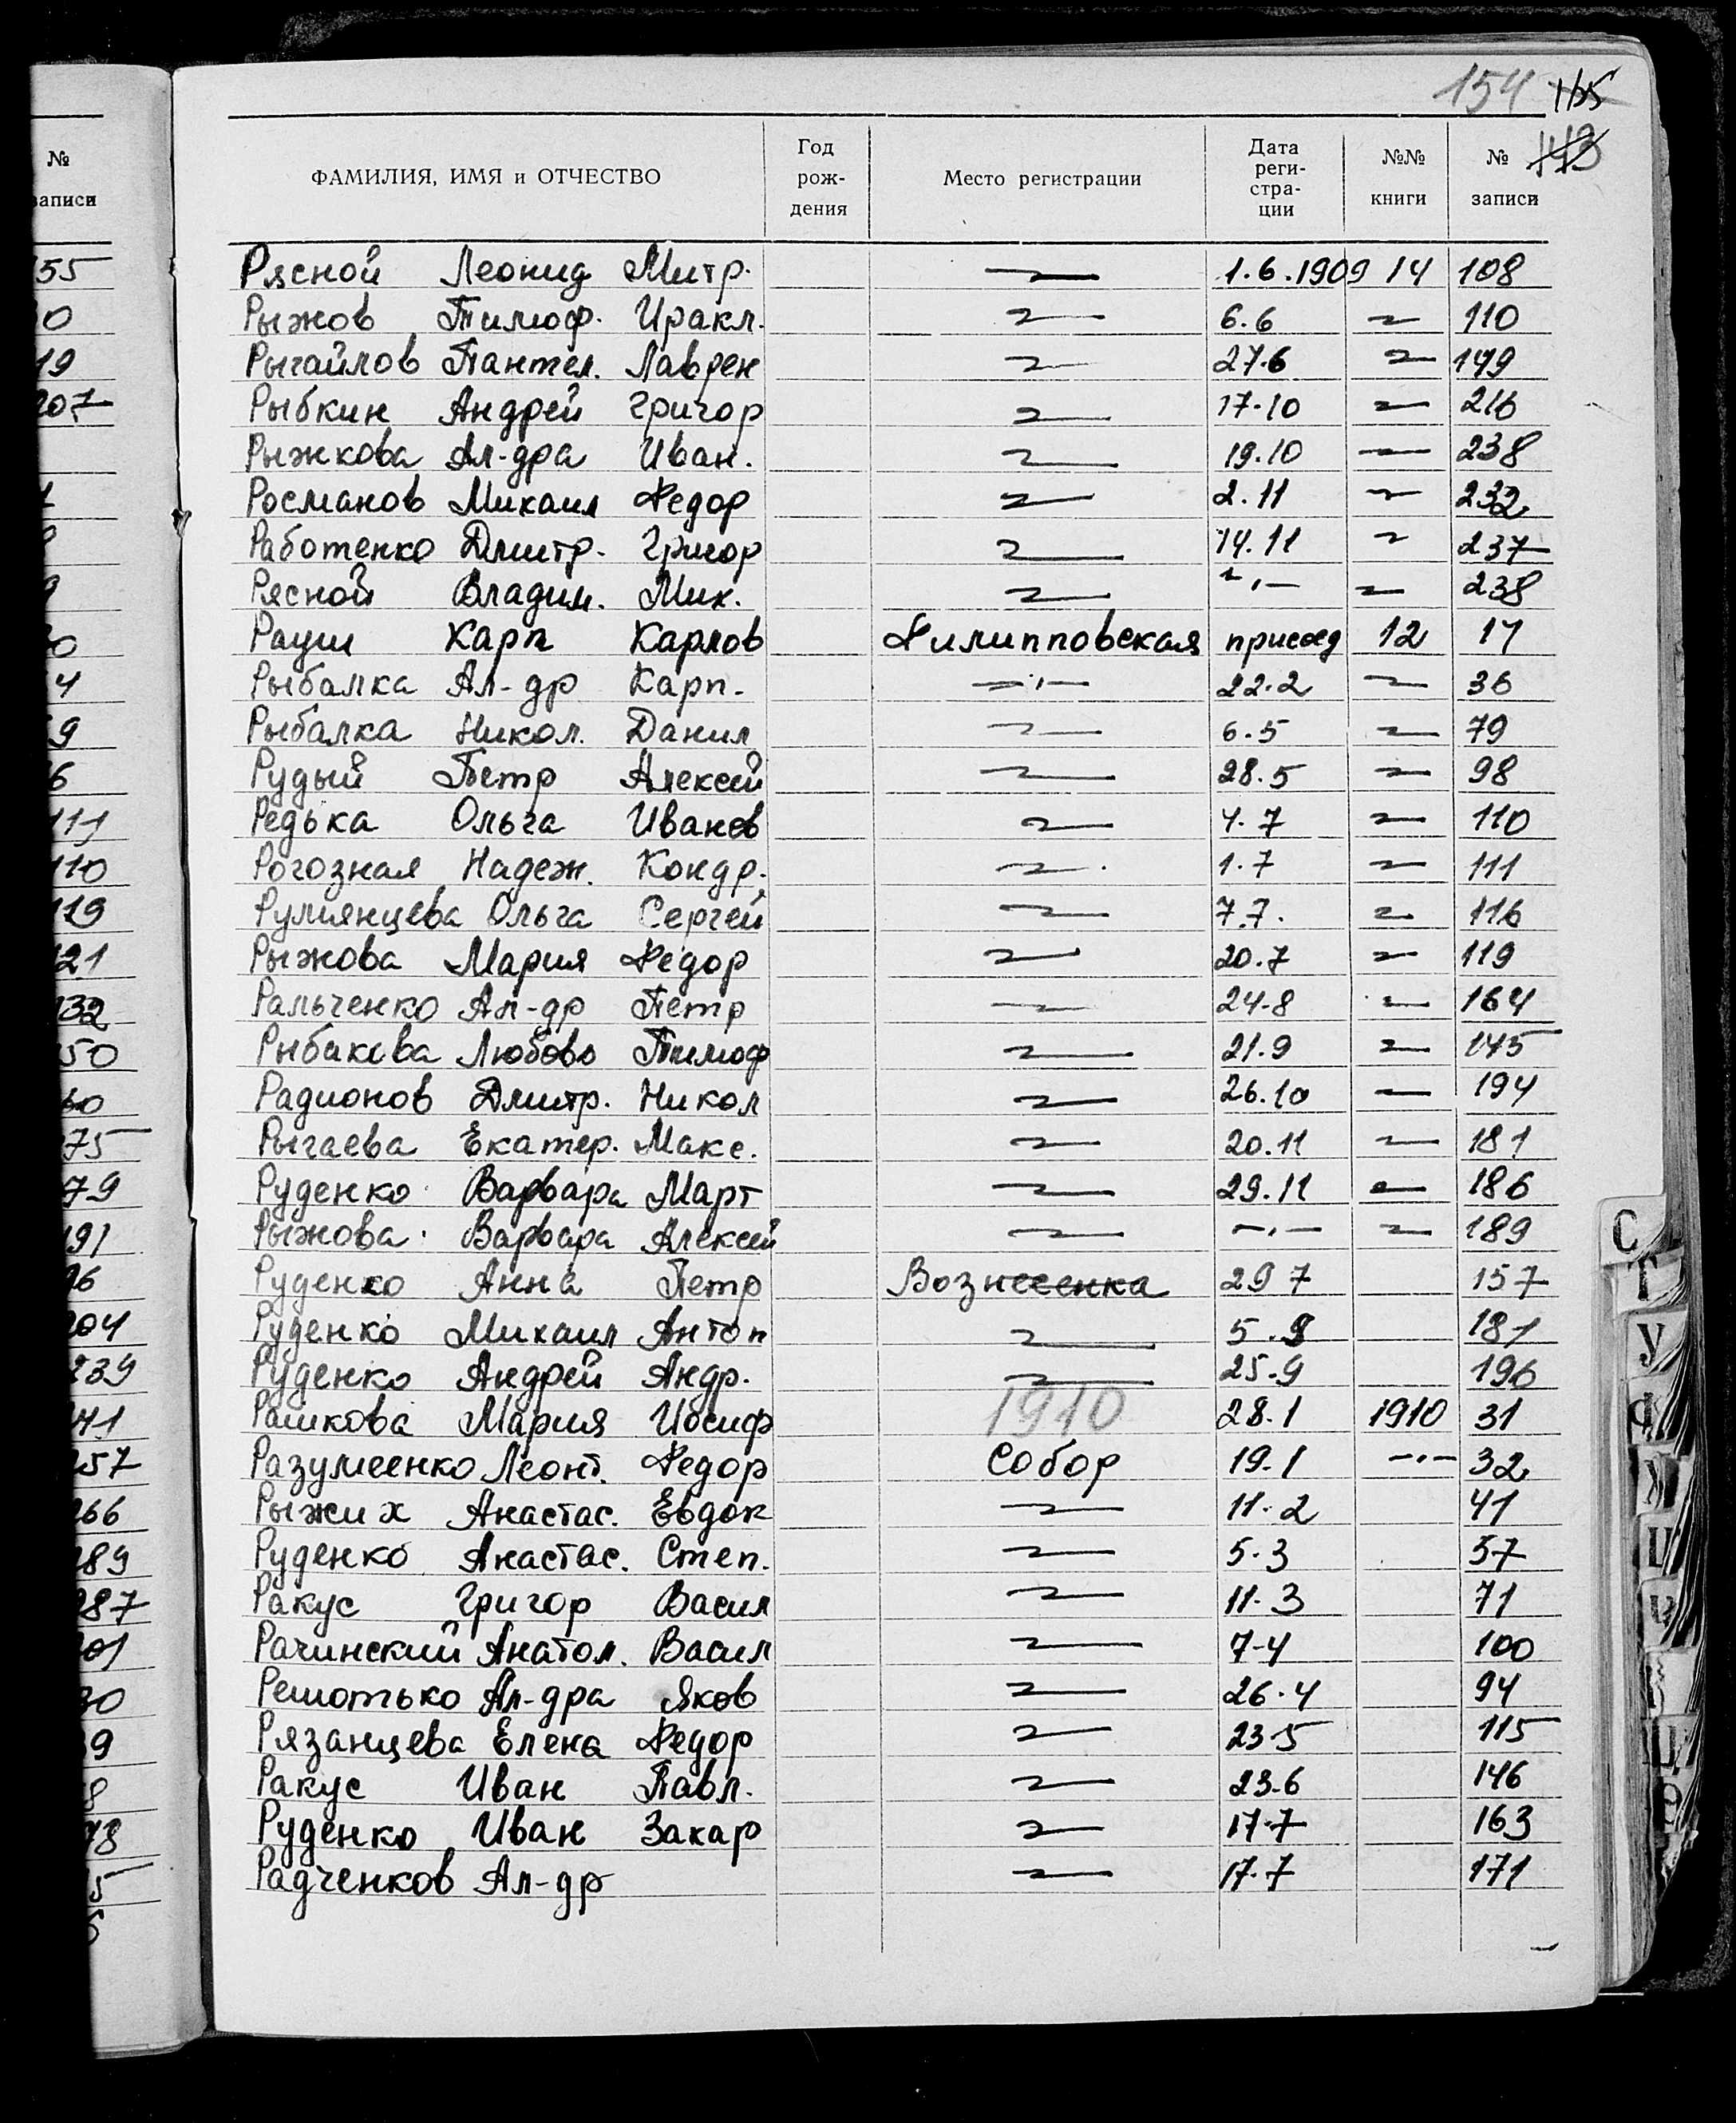 154 115
143
ФАМИЛИЯ, ИМЯ и ОТЧЕСТВО Год рождения Место регистрации Дата реги-стра-ции №№ книги № записи
Рясной Леонид Митр. 〃 1.6.1909 14 108
Рыжов Тимоф. Иракл. 〃 6.6 〃 110
Рычайлов Пантел. Лаврен 〃 27.6 〃 149
Рыбкин Андрей Григор 〃 17.10 〃 216
Рыжкова Ал-дра Иван. 〃 19.10 — 238
Росманов Михаил Федор 〃 2.11 〃 232
Работенко Дмитр. Григор 〃 14.11 〃 237
Рясной Владим. Мих. 〃 〃 〃 238
Рауш Карп Карлов Филипповская присоед 12 17
Рыбалка Ал-др Карп. —〃— 22.2 〃 36
Рыбалка Никол. Данил 〃 6.5 〃 79
Рудый Петр Алексей 〃 28.5 〃 98
Редька Ольга Иванов 〃 4.7 〃 110
Рогозная Надеж. Кондр. 〃 1.7 〃 111
Румянцева Ольга Сергей 〃 7.7. 〃 116
Рыжова Мария Федор 〃 20.7 〃 119
Ральченко Ал-др Петр 〃 24.8 〃 164
Рыбакова Любовь Тимоф 〃 21.9 〃 145
Радионов Дмитр. Никол 〃 26.10 — 194
Рычаева Екатер. Макс. 〃 20.11 〃 181
Руденко Варвара Март 〃 29.11 〃 186
Рыжова Варвара Алексей 〃 —〃— 〃 189
Руденко Анна Петр Вознесенка 29 7 157
Руденко Михаил Антон 〃 5.8 181
Руденко Андрей Андр. 〃 25.9 196
Рашкова Мария Иосиф 1910 28.1 1910 31
Разумеенко Леонт. Федор Собор 19.1 —〃— 32
Рыжих Анастас. Евдок 〃 11.2 41
Руденко Анастас. Степ. 〃 5.3 57
Ракус Григор Васил 〃 11.3 71
Рачинский Анатол. Васил 〃 7-4 100
Решотько Ал-дра Яков 〃 26.4 94
Рязанцева Елена Федор 〃 23.5 115
Ракус Иван Павл. 〃 23.6 146
Руденко Иван Захар 〃 17.7 163
Радченков Ал-др 〃 17.7 171